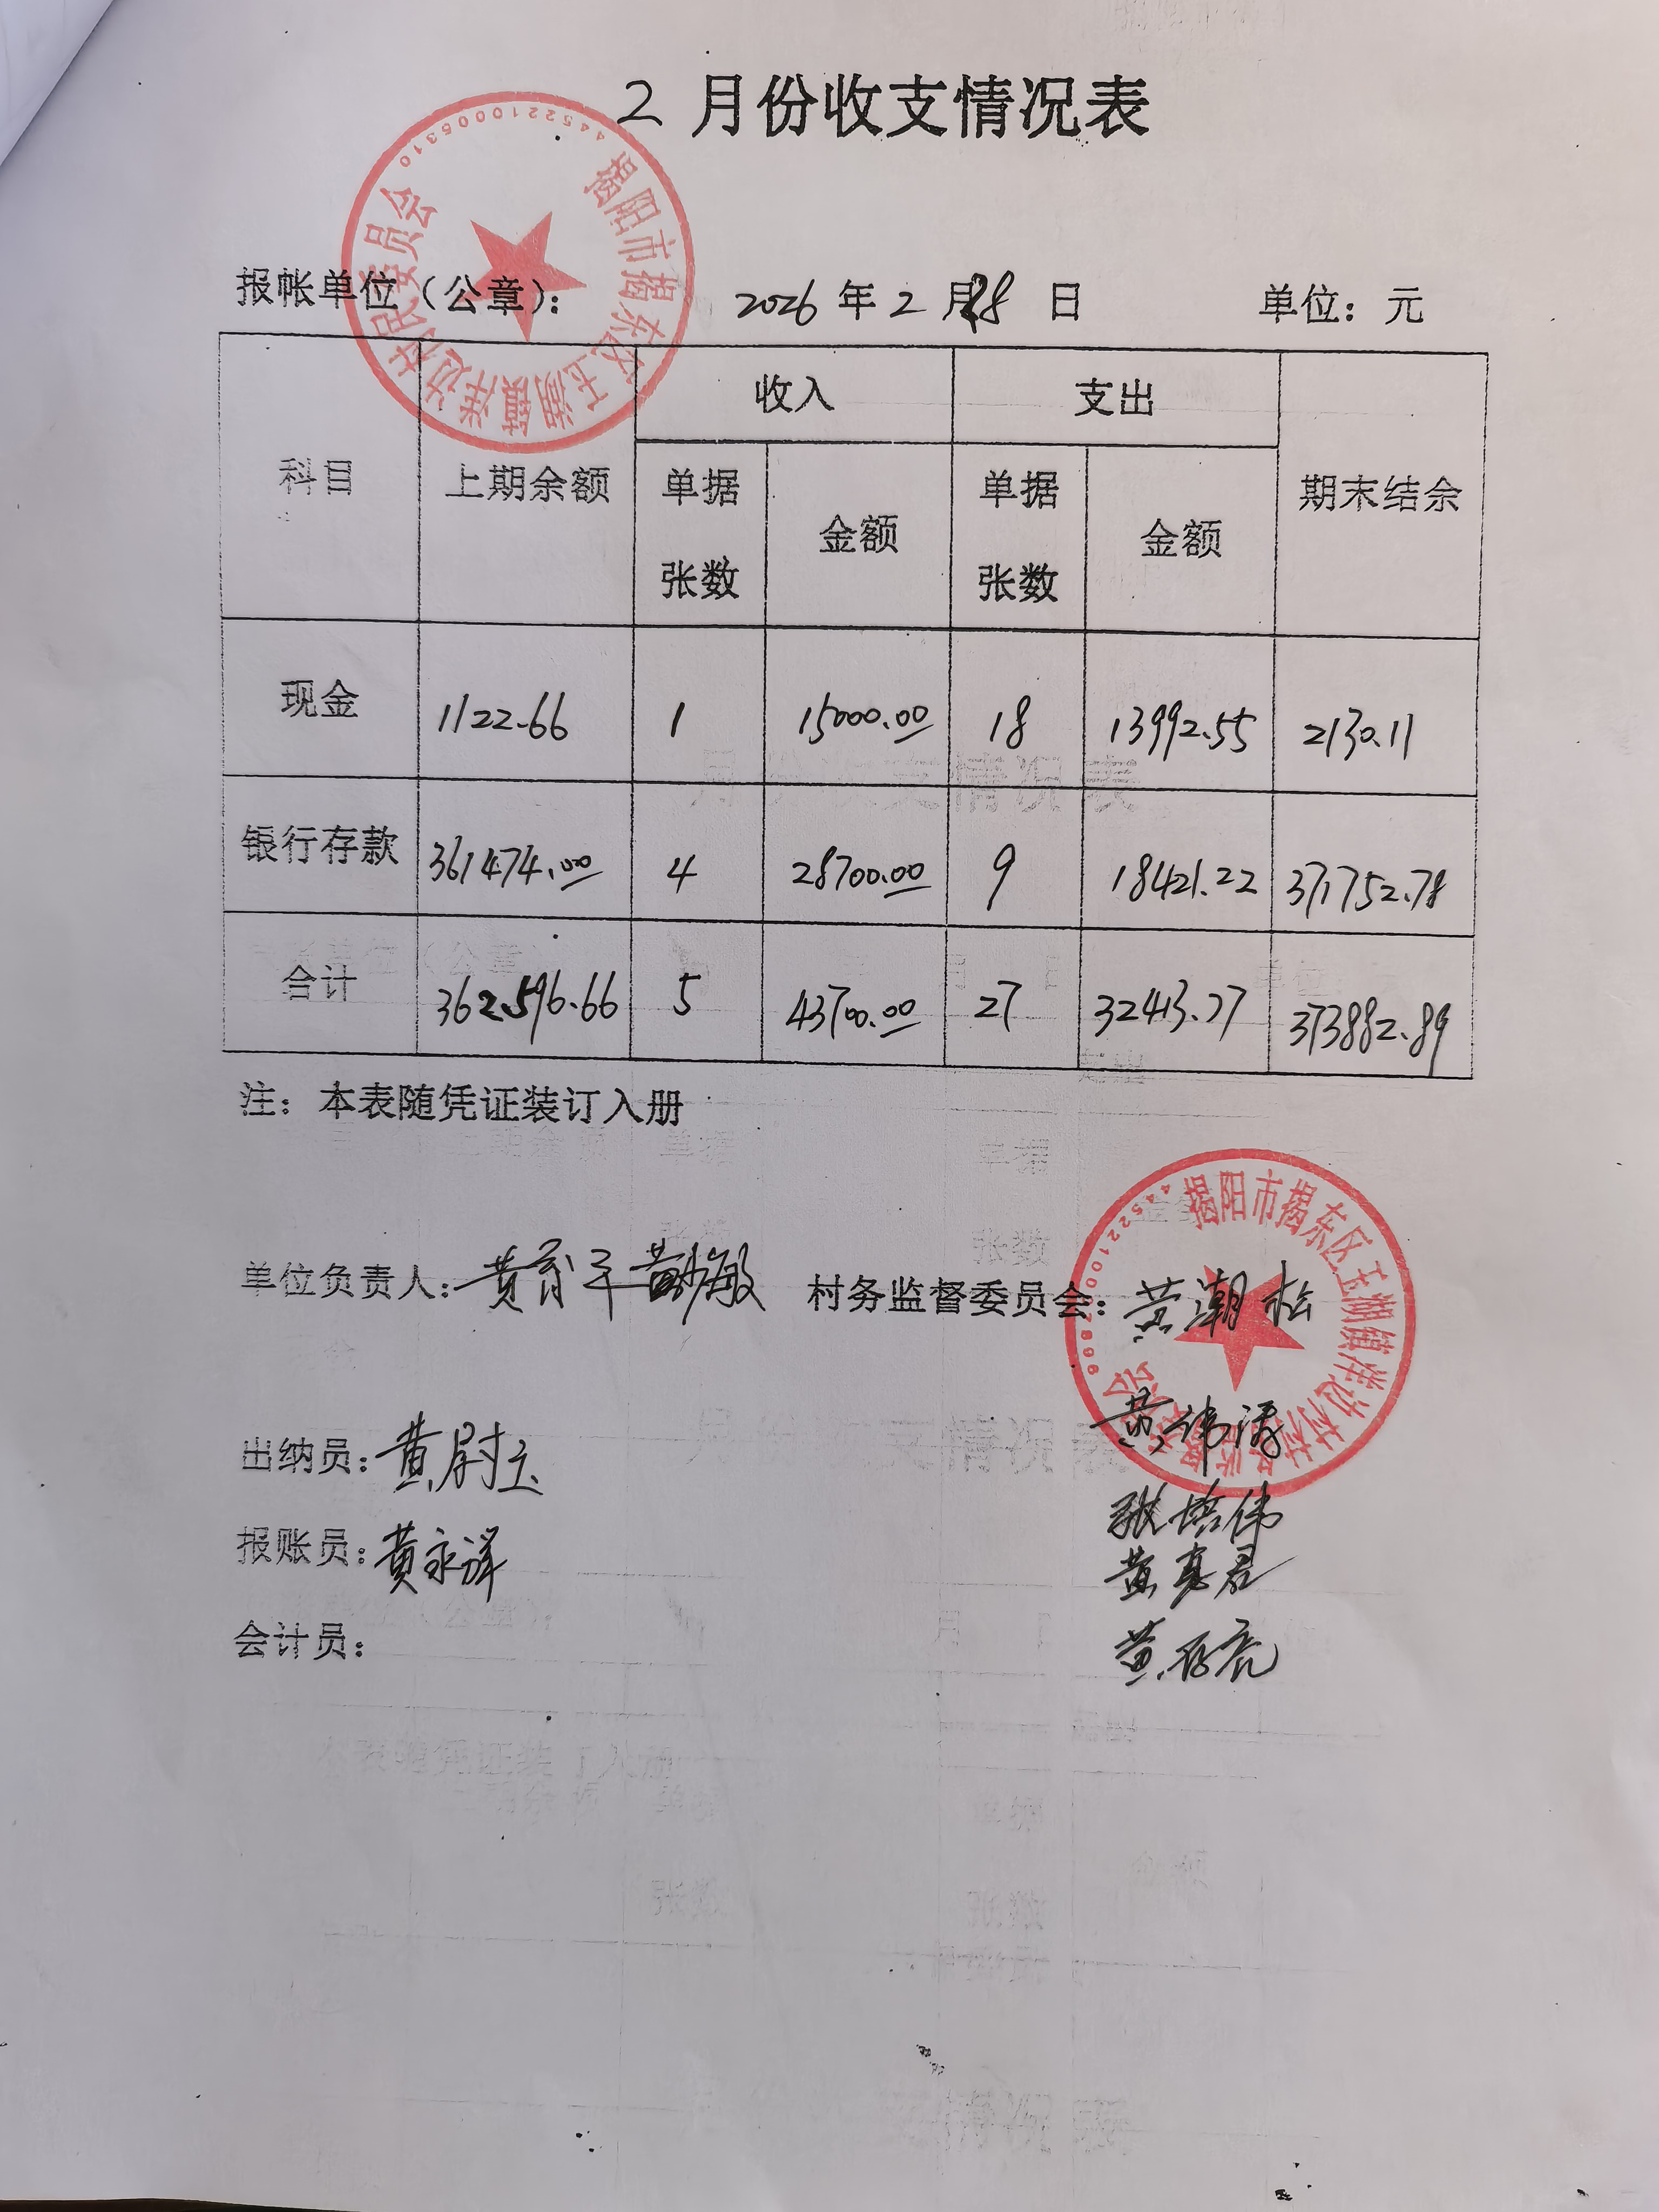 2 月份收支情况表
揭阳市揭东区玉湖镇洋边村村民委员会
4452210005310
报帐单位（公章）： 2026 年 2 月 28 日 单位：元
科目 上期余额 收入 支出 期末结余
单据张数 金额 单据张数 金额
现金 1122.66 1 15000.00 18 13992.55 2130.11
银行存款 361474.00 4 28700.00 9 18421.22 371752.78
合计 362596.66 5 43700.00 27 32413.77 373882.89
注：本表随凭证装订入册
揭阳市揭东区玉湖镇洋边村村务监督委员会
单位负责人： 黄 村务监督委员会：黄潮松
黄伟涛
出纳员：黄尉立
张培伟
报账员：黄永谋
黄
会计员：
黄